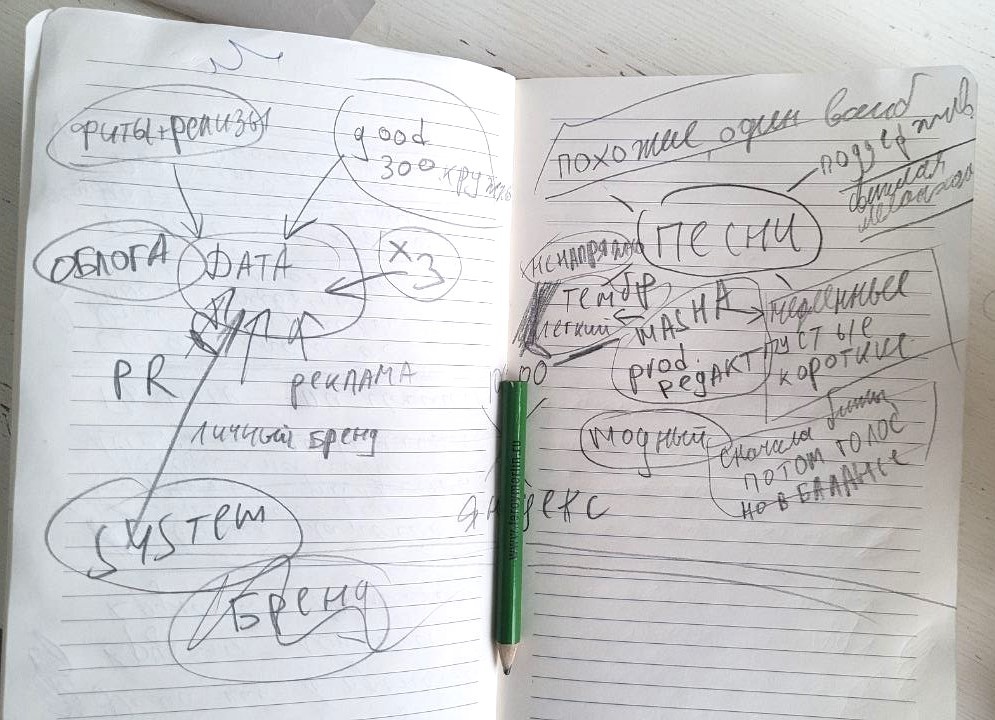 фиты+релизы
good
300 кружены
ОБЛОГА
ДАТА
х3
PR
РЕКЛАМА
личный бренд
SYSTEM
Бренд
похожие один вайб
ПЕСНИ
тембр
легкий
MASHA
prod.
редакт
медленные
пустые
короткие
модный
сначала биты
ПОТОМ ГОЛОС
НО В БАЛАНСЕ
яндекс